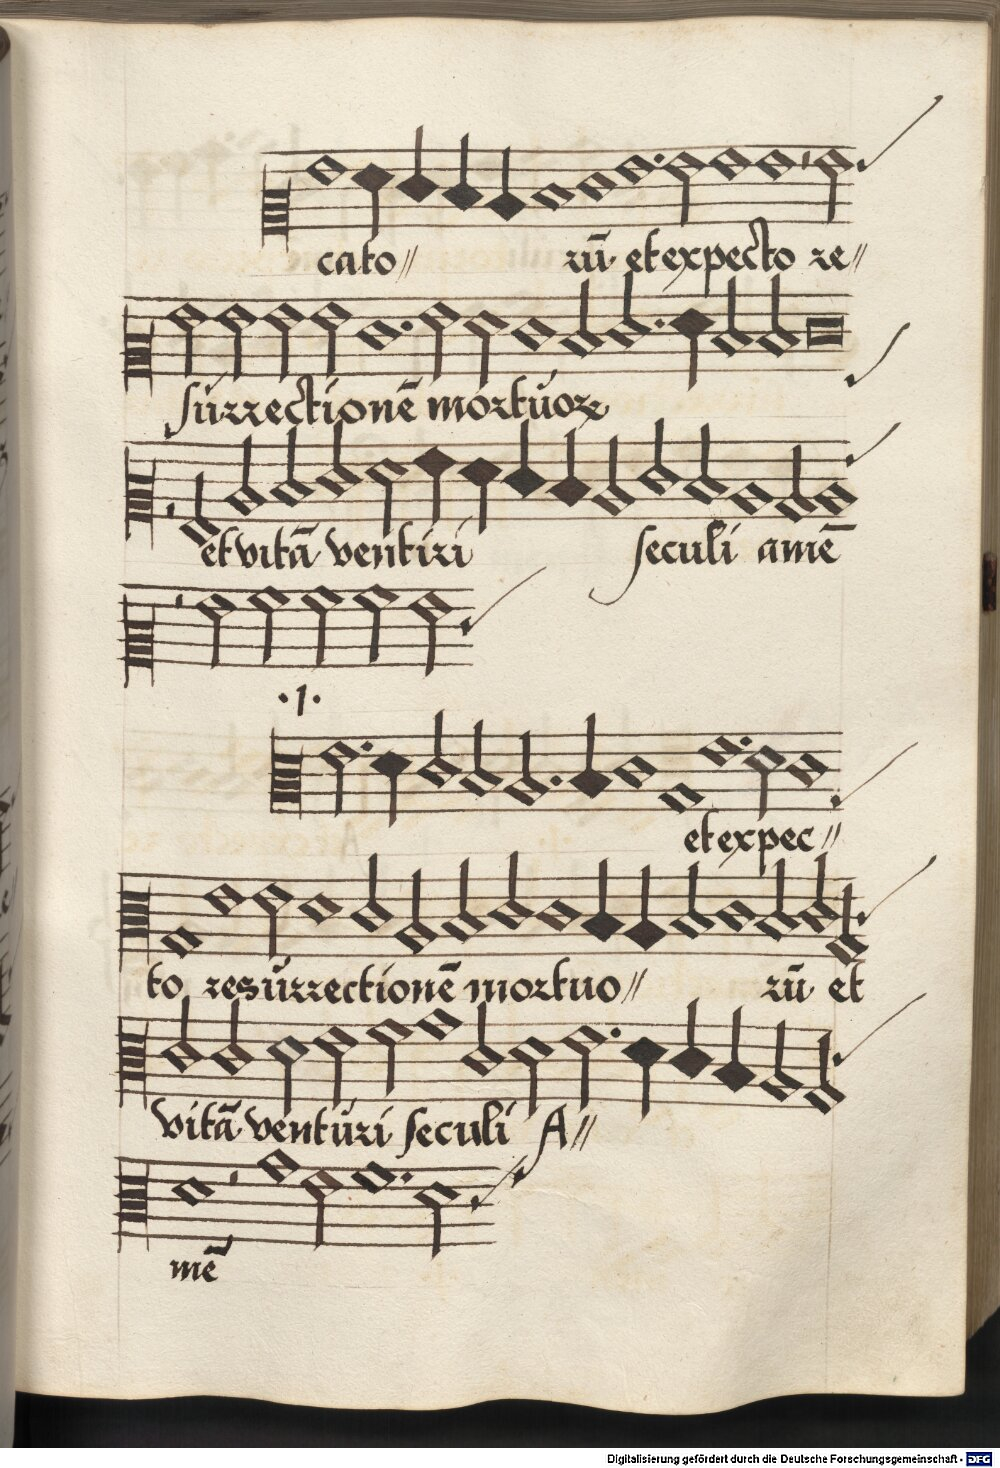 cato// rū et expecto re//
surrectionē mortuoꝝ
et vitā ventiri seculi amē
·1·
et expec//
to resurrectionē mortuo// rū et
vitā venturi seculi A//
mē
Digitalisierung gefördert durch die Deutsche Forschungsgemeinschaft - DFG